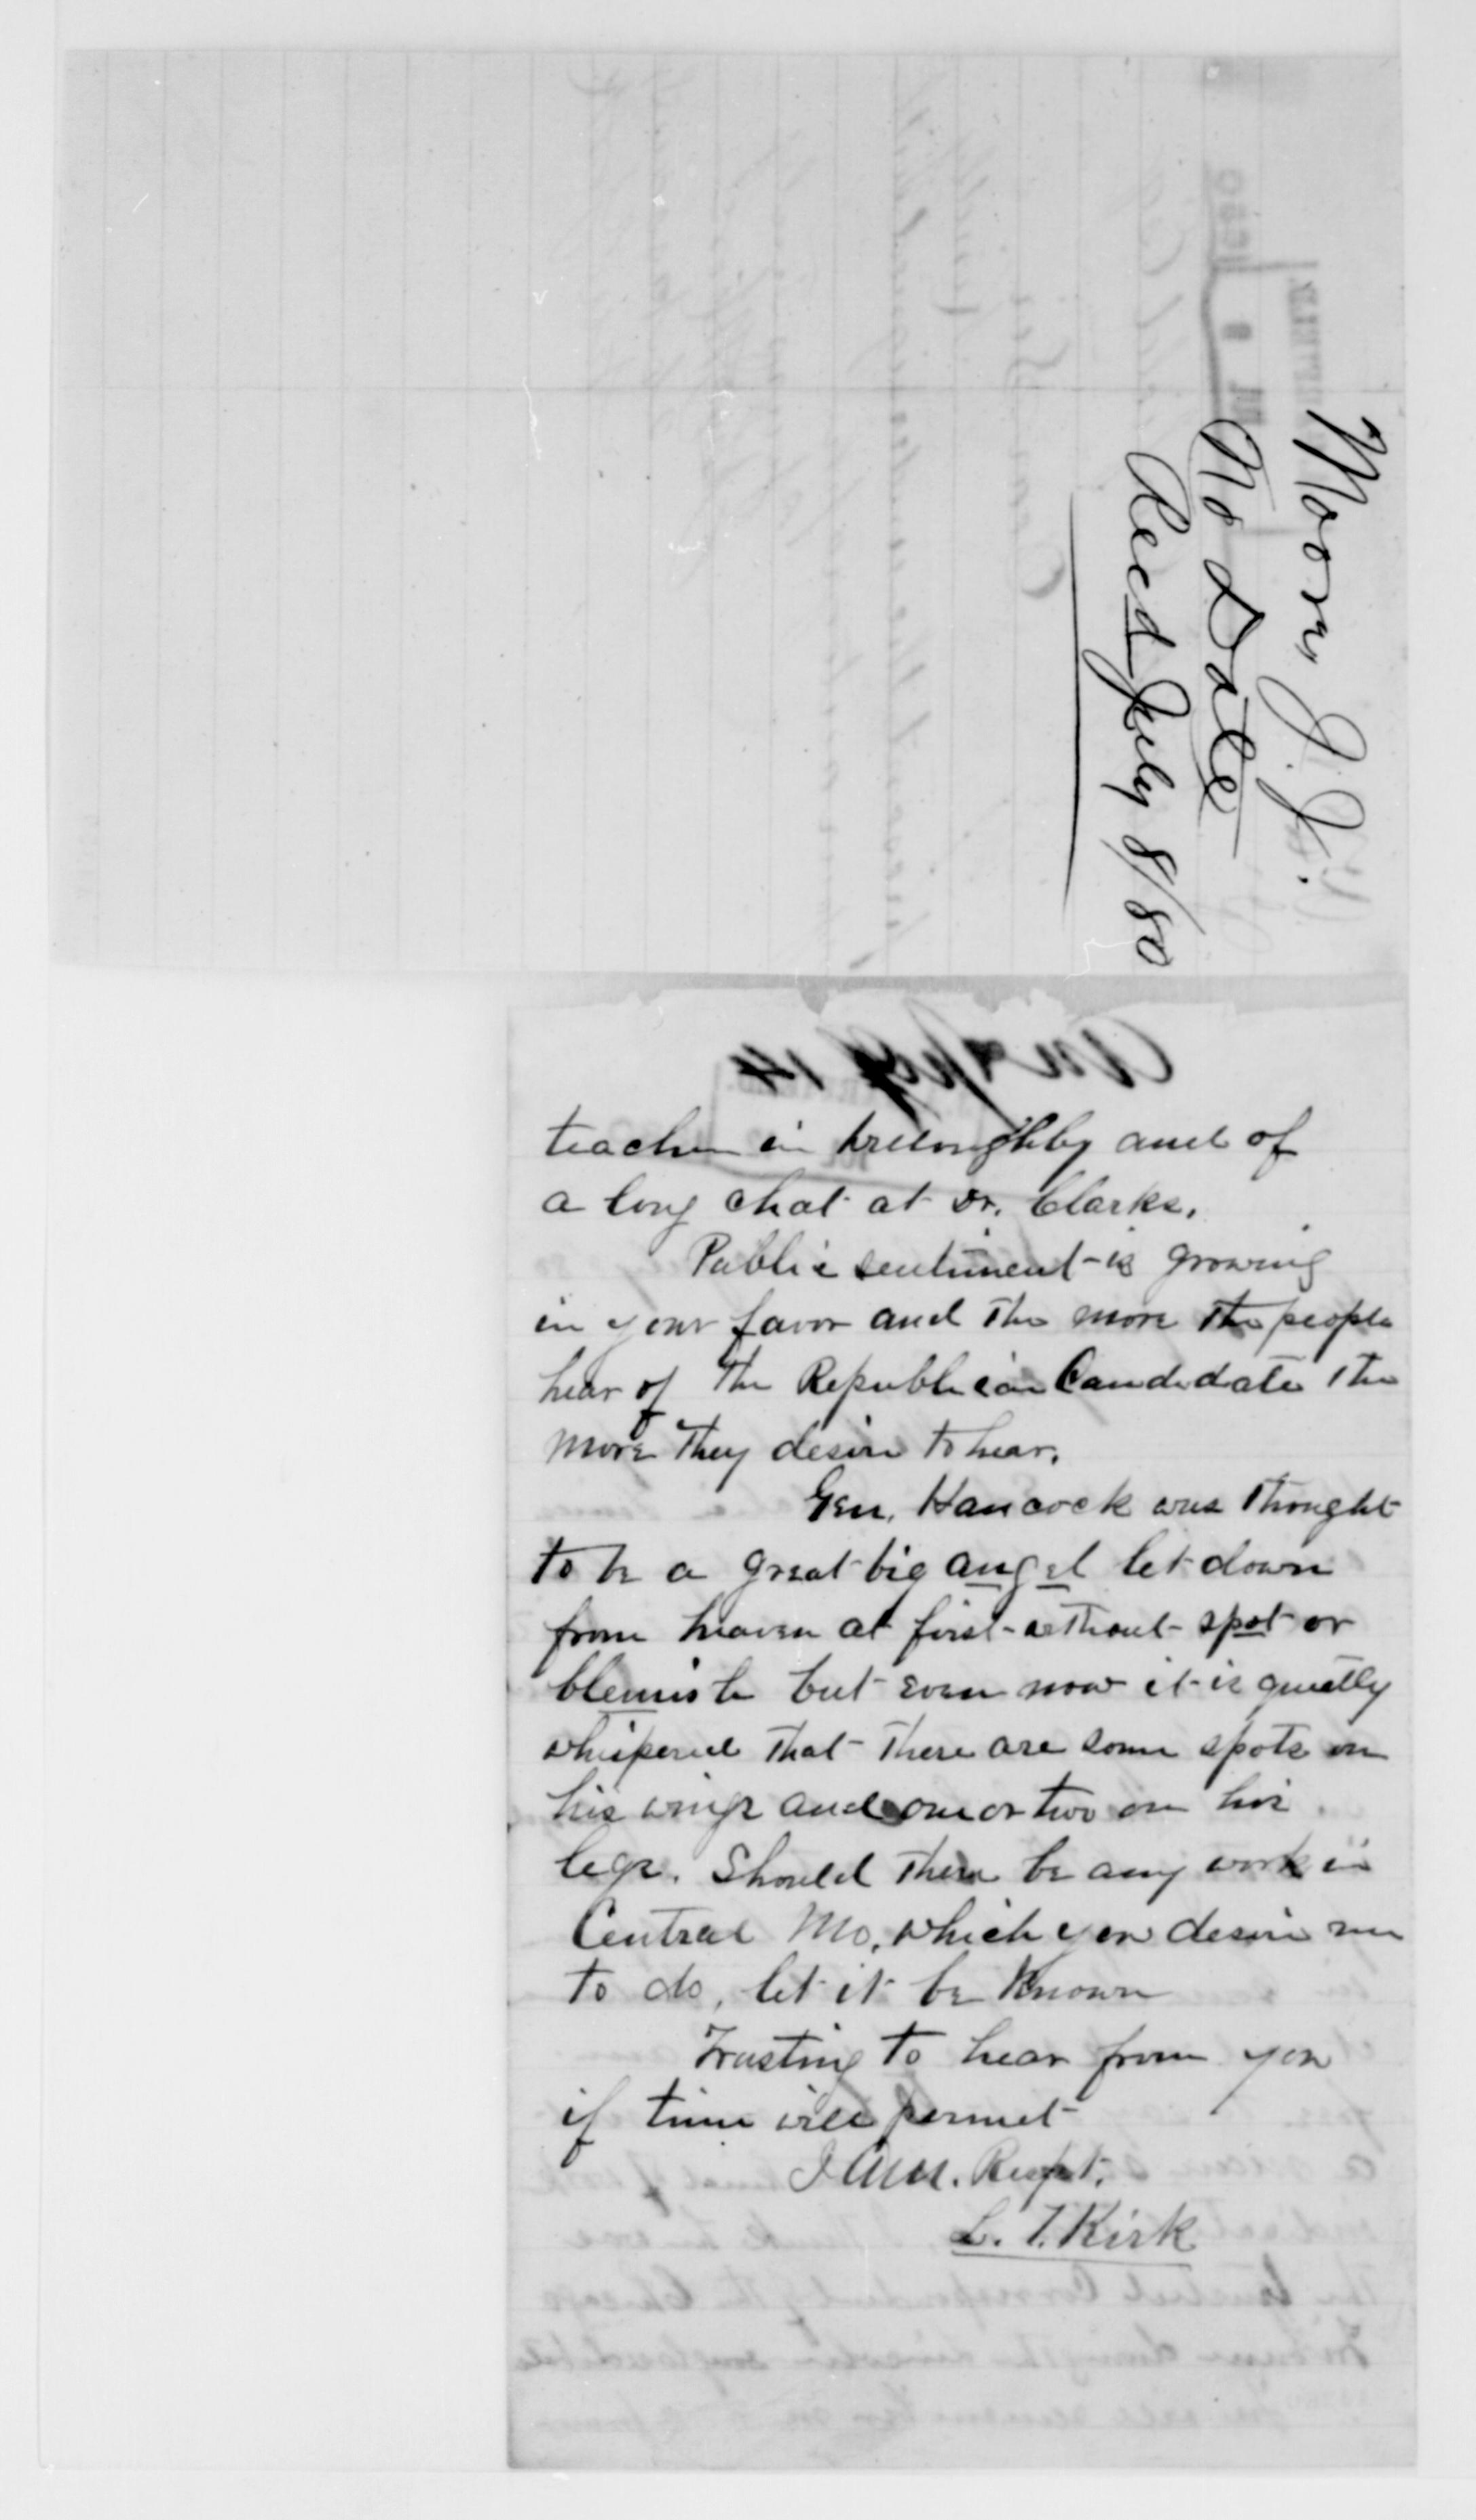 Moore J. J.
No Date
Recd July 8/80
teacher in Willoughby and of
a long chat at Dr. Clarks.
Public sentiment is growing
in your favor and the more the people
hear of the Republican Candidate the
more they desire to hear.
Gen. Hancock was thought
to be a great big angel let down
from heaven at first without spot or
blemish but even now it is quietly
whispered that there are some spots on
his wings and one or two on his
legs. Should there be any work in
Central Mo. which you desire me
to do, let it be known
Trusting to hear from you
if time will permit
I am. Respt.
L. T. Kirk